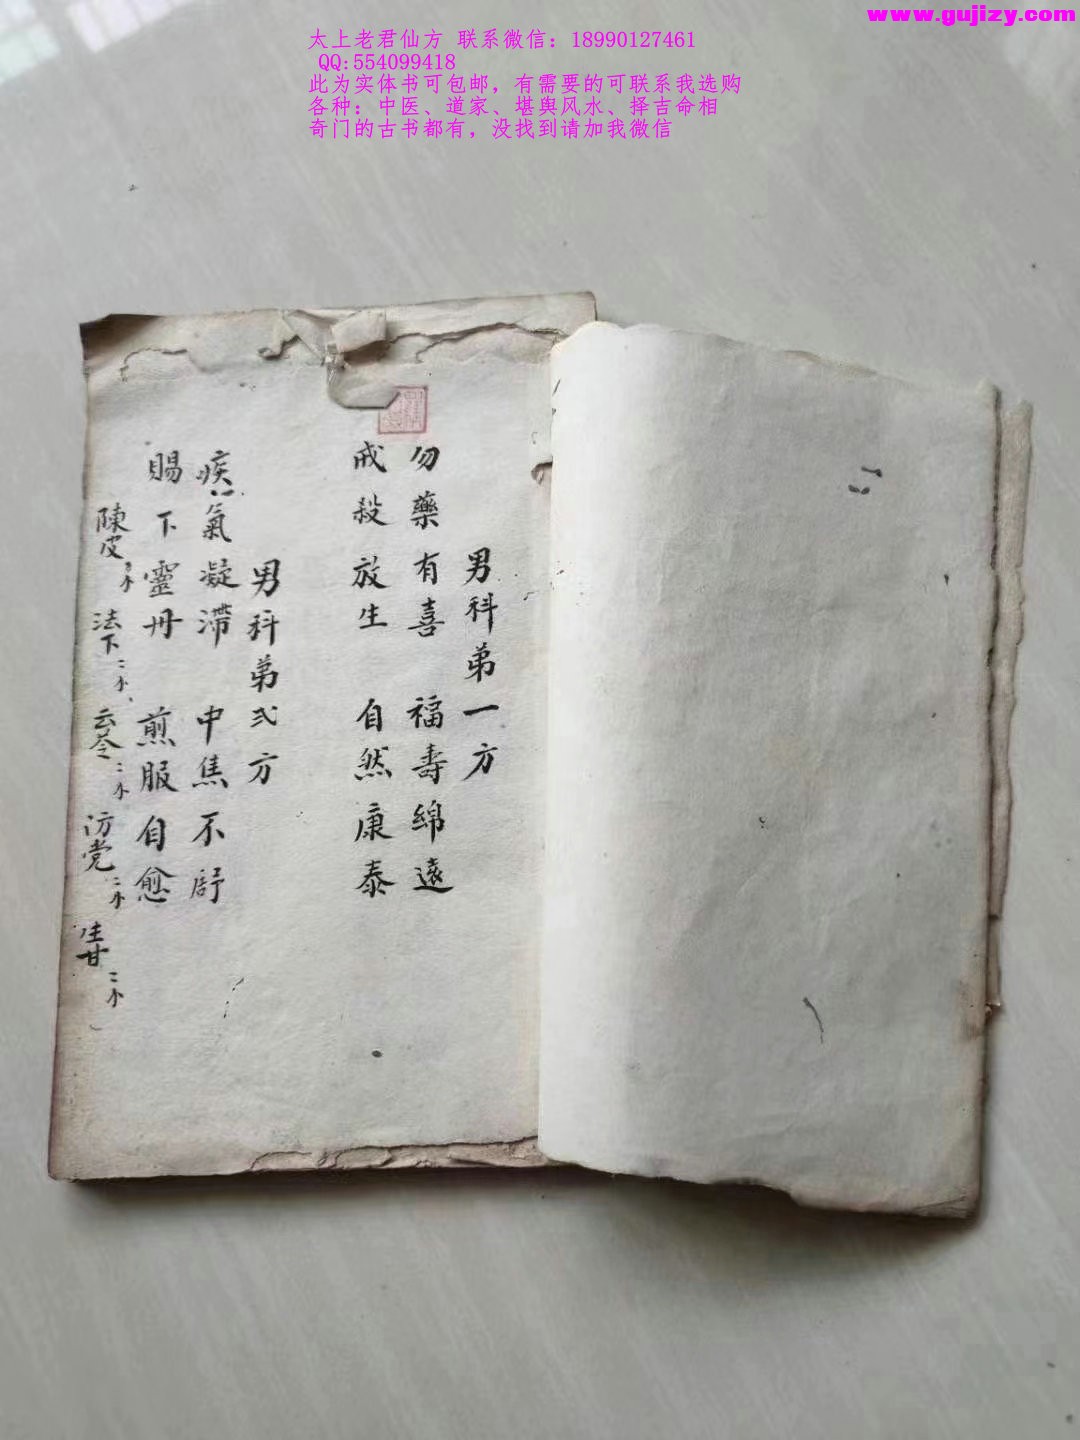 www.gujizy.com
太上老君仙方 联系微信：18990127461
QQ:554099418
此为实体书可包邮，有需要的可联系我选购
各种：中医、道家、堪舆风水、择吉命相
奇门的古书都有，没找到请加我微信
男科第一方
勿藥有喜 福壽綿遠
戒殺放生 自然康泰
男科第弍方
痰氣凝滯 中焦不舒
賜下靈丹 煎服自愈
陳皮 法下 云苓 防党 生甘